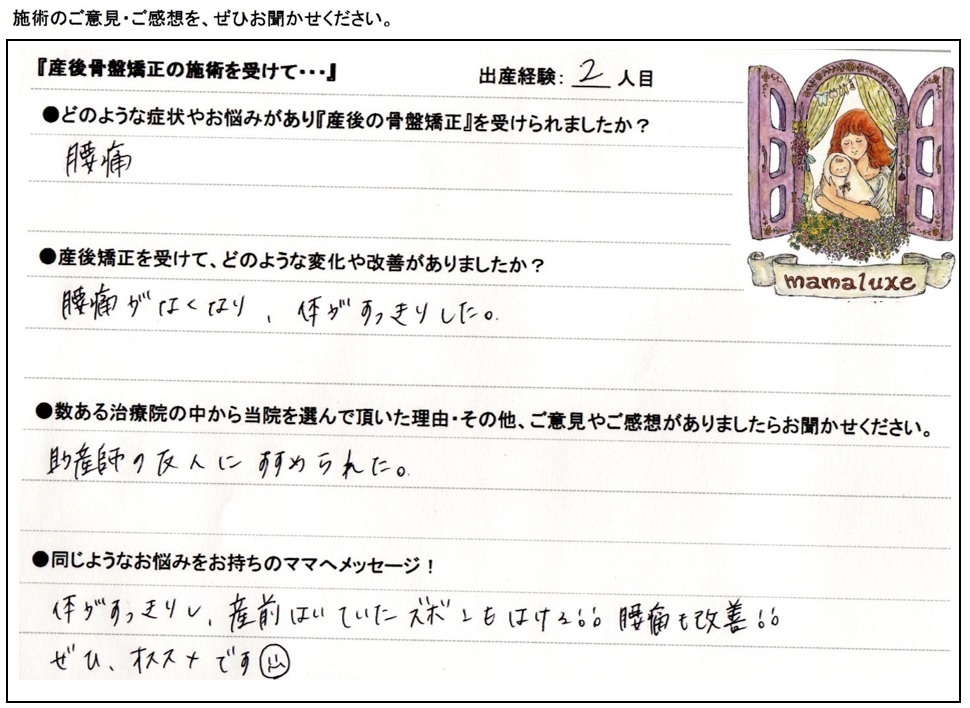 施術のご意見・ご感想を、ぜひお聞かせください。
『産後骨盤矯正の施術を受けて・・・』 出産経験: 2 人目
●どのような症状やお悩みがあり『産後の骨盤矯正』を受けられましたか？
腰痛
mamaluxe
●産後矯正を受けて、どのような変化や改善がありましたか？
腰痛がなくなり、体がすっきりした。
●数ある治療院の中から当院を選んで頂いた理由・その他、ご意見やご感想がありましたらお聞かせください。
助産師の友人にすすめられた。
●同じようなお悩みをお持ちのママへメッセージ！
体がすっきりし、産前はいていたズボンもはける!! 腰痛も改善!!
ぜひ、オススメです